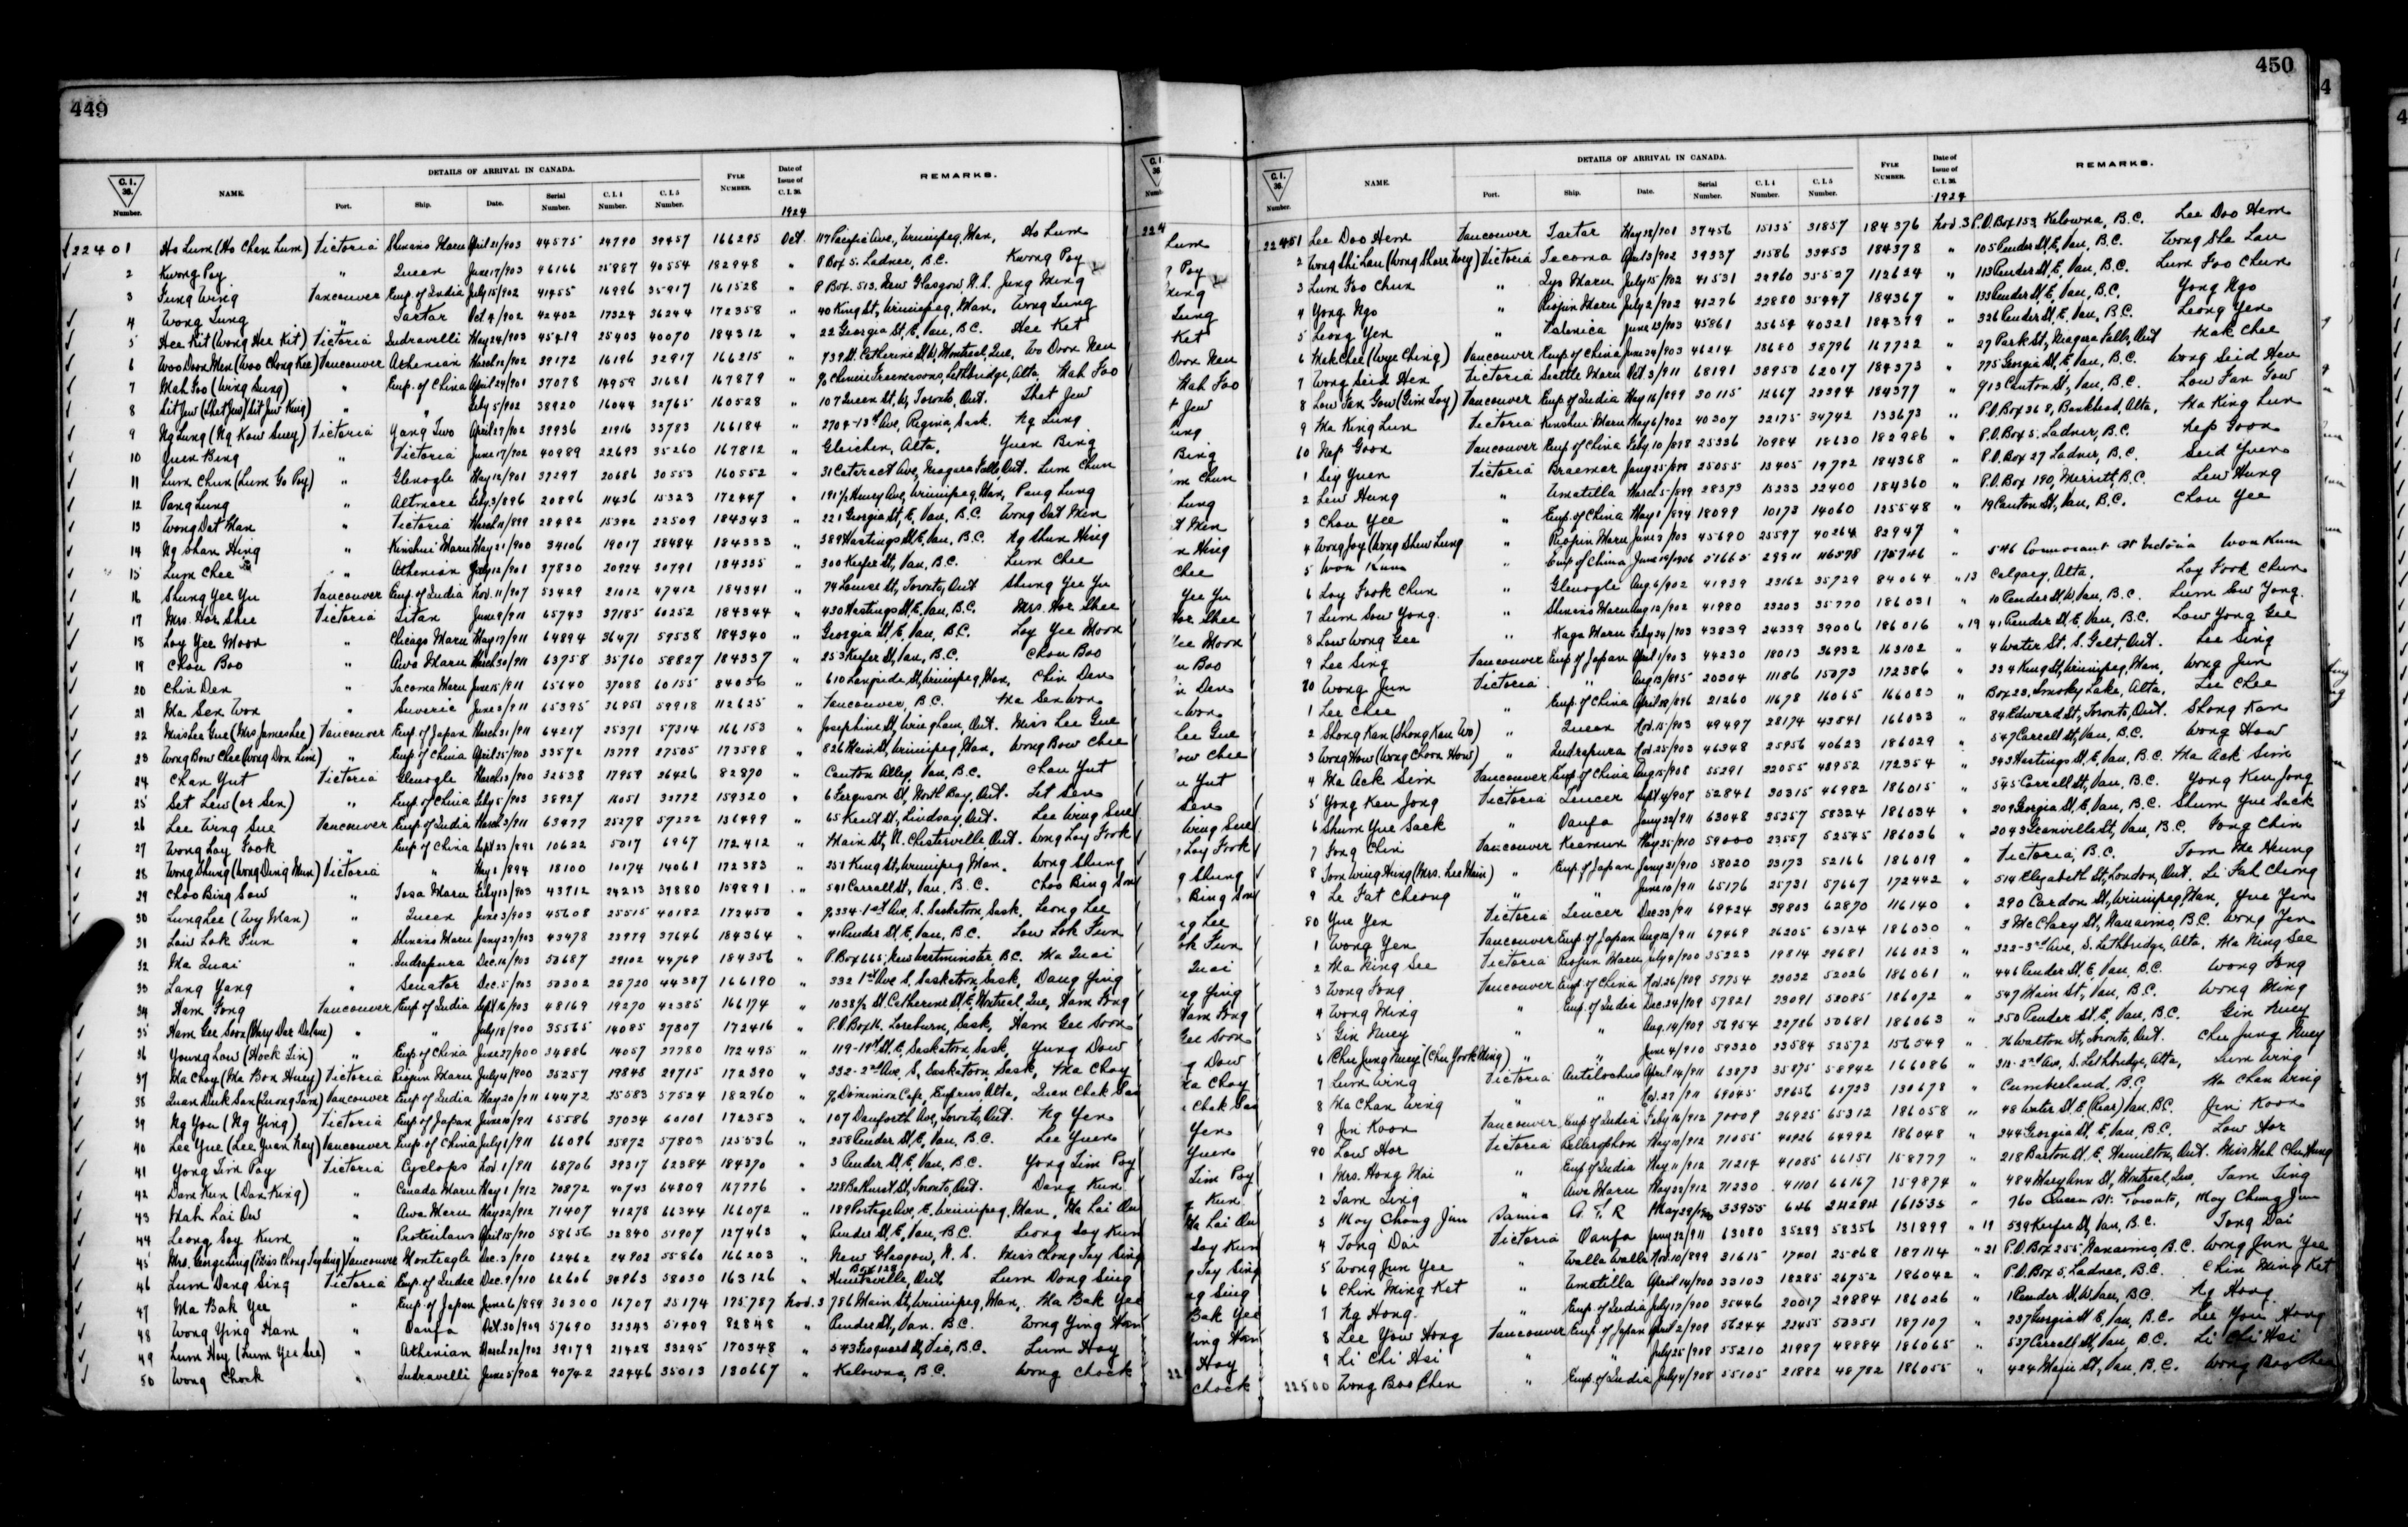 449
C.I. 36. Number.
NAME.
DETAILS OF ARRIVAL IN CANADA.
Port. Ship. Date. Serial Number. C.I.4 Number. C.I.5 Number.
FYLE NUMBER.
Date of Issue of C.I.36. 1924
REMARKS.
22401 Ho Lum (Ho Chan Lum) Victoria Shinano Maru April 21/903 44575 24790 39457 166295 Oct. 117 Pacific Ave., Winnipeg, Man. Ho Lum
2 Kwong Poy " Queen June 17/903 46166 25887 40554 182948 " P Box 5. Ladner, B.C. Kwong Poy
3 Vancouver Emp. of India July 15/902 41455 16996 35917 161528 " P Box 513. New Glasgow, N.S.
4 Wong Lung " Tartar Oct 9/902 42402 17324 36244 172358 " 40 King St, Winnipeg, Man. Wong Lung
5 Hee Kit (Wong Hee Kit) Victoria Indravelli May 24/903 45419 25403 40070 184312 " 22 Georgia St, E, Van, B.C. Hee Ket
6 Vancouver Athenian March 1902 39172 16196 32917 166215 " 739 St. Catherine St. W, Montreal, Que,
7 Mah Foo (Wing Lung) " Emp. of China April 24/901 37078 14959 31681 167879 " c/o Chinese Freemasons, Lethbridge, Alta. Mah Foo
8 " " July 5/902 38920 16044 32765 160528 " 107 Queen St, W, Toronto, Ont. Shet Jew
9 Ng Lung (Ng Kow Suey) Victoria Yang Two April 29/902 39936 21916 33783 166184 " 2704-13th Ave, Regina, Sask. Ng Lung
10 Yuen Bing " Victoria June 17/902 40989 22693 35260 167812 " Gleichen, Alta. Yuen Bing
11 Lum Chun (Lum Go Poy) " Glenogle May 12/901 37297 20686 30553 160552 " 31 Cataract Ave, Niagara Falls, Ont. Lum Chun
12 Pang Lung " Altmore July 3/896 20896 11436 15323 172447 " 191½ Henry Ave, Winnipeg, Man, Pang Lung
13 Wong Dat Man " Victoria March 11/899 28482 15342 22509 184343 " 221 Georgia St, E, Van, B.C. Wong Dat Men
14 Ng Shan Hing " Kinshui Maru May 21/900 34106 19017 28484 184333 " 389 Hastings St, E, Van, B.C. Ng Shun Hing
15 Lum Chee " Athenian July 12/901 37830 20924 30791 184335 " 300 Keefer St, Van, B.C. Lum Chee
16 Shung Yee Yu Vancouver Emp. of India Nov. 11/907 53429 21012 47412 184341 " 74 Louise St, Toronto, Ont Shung Yee Yu
17 Mrs. Hor Shee Victoria Titan June 9/911 65743 37185 60252 184344 " 430 Hastings St, E, Van, B.C. Mrs. Hor Shee
18 Loy Yee Moon " Chicago Maru May 17/911 64894 36471 59538 184340 " Georgia St, E, Van, B.C. Loy Yee Moon
19 Chou Boo " Awa Maru March 30/911 63758 35760 58827 184337 " 253 Keefer St, Van, B.C. Chou Boo
20 Chin Den " Tacoma Maru June 15/911 65640 37088 60155 84056 " 610 Langside St, Winnipeg, Man, Chin Den
21 Ma Sen Won " Suveric June 2/911 65395 36851 59918 112625 " Vancouver, B.C. Ma Sen Won
22 Miss Lee Gue (Mrs James Lee) Vancouver Emp. of Japan March 31/911 64217 25371 57314 166153 " Josephine St, Wingham, Ont. Miss Lee Gue
23 Wong Bow Chee (Wong Don Lim) " Emp. of China April 25/900 33572 13779 27505 173598 " 826 Main St, Winnipeg, Man, Wong Bow Chee
24 Chan Yut Victoria Glenogle March 3/900 32538 17959 26426 82870 " Canton Alley, Van, B.C. Chan Yut
25 Set Lew (or Sen) " Emp. of China July 5/902 38927 16051 32772 159320 " 6 Ferguson St, North Bay, Ont. Let Sen
26 Lee Wing Sue Vancouver Emp. of India March 3/911 63477 25278 57222 136499 " 65 Kent St, Lindsay, Ont. Lee Wing Sue
27 Wong Loy Fook " Emp. of China Sept 23/892 10622 5017 6967 172412 " Main St, N. Chesterville, Ont. Wong Loy Fook
28 Wong Shung (Wong Ding Mun) Victoria " May 1/894 18100 10174 14061 172383 " 251 King St, Winnipeg, Man. Wong Shung
29 Choo Bing Sow " Tosa Maru Feby 13/903 43712 24213 38880 159891 " 541 Carrall St, Van, B.C. Choo Bing Sow
30 Lung Lee (Wy Man) " Queen June 3/903 45608 25515 40182 172450 " 334-1st Ave, S. Saskatoon, Sask. Leong Lee
31 Low Lok Fun " Shinano Maru Jany 27/903 43478 22979 37646 184364 " 41 Pender St, E, Van, B.C. Low Lok Fun
32 Ma Quai " Indrapura Dec. 16/903 50687 29102 44769 184356 " P.O. Box 665, New Westminster B.C. Ma Quai
33 Lang Yang " Senator Dec. 5/903 50302 28720 44387 166190 " 332 1st Ave S. Saskatoon, Sask, Dang Ying
34 Ham Fong Vancouver Emp. of India Sept 16/903 48169 19270 42385 166174 " 1038½ St Catherine St, E, Montreal, Que, Ham Fong
35 Ham Gee Soon " " July 18/900 35565 14085 27807 172416 " P.O. Box 16. Loreburn, Sask, Ham Gee Soon
36 Young Low (Hock Lin) " Emp. of China June 27/900 34886 14057 27780 172495 " 119-19th St, E, Saskatoon, Sask, Yung Dow
37 Ma Choy (Ma Bon Huey) Victoria Riojun Maru July 4/900 35257 19848 29715 172390 " 332-2nd Ave, S, Saskatoon Sask, Ma Choy
38 Vancouver Emp of India May 20/911 64472 25583 57524 182960 " Dominion Cafe, Empress Alta,
39 Ng You (Ng Ying) Victoria Emp. of Japan June 10/911 65586 37034 60101 172353 " 107 Danforth Ave, Toronto, Ont. Ng Yen
40 Lee Yue (Lee Yuan Kay) Vancouver Emp. of China July 1/911 66096 25872 57803 125536 " 258 Pender St, E, Van, B.C. Lee Yuen
41 Yong Tim Poy Victoria Cyclops Nov. 1/911 68706 39317 62384 184370 " 3 Pender St, E, Van, B.C. Yong Tim Poy
42 Dam Kun (Dan King) " Canada Maru May 1/912 70872 40743 64809 167776 " 228 Bathurst St, Toronto, Ont. Dang Kun
43 Mah Lai On " Awa Maru May 22/912 71407 41278 66344 166072 " 189 Portage Ave, E. Winnipeg, Man, Ma Lai On
44 Leong Soy Kum " Protesilaus April 15/910 58656 32840 51907 127463 " Pender St, E, Van, B.C. Leong Soy Kum
45 Vancouver Monteagle Dec. 3/910 62462 24902 55860 166203 " New Glasgow, N.S. Miss Chong Jay Sing
46 Lum Dang Sing Victoria Emp. of India Dec. 9/910 62606 34963 58030 163126 " Box 129 Huntsville, Ont Lum Dong Sing
47 Ma Bak Yee " Emp. of Japan June 6/899 30300 16707 25174 175787 Nov. 3 786 Main St, Winnipeg, Man, Ma Bak Yee
48 Wong Ying Ham " Oanfa Oct. 30/909 57690 32343 51409 82848 " Pender St, Van. B.C. Wong Ying Ham
49 Lum Hoy (Lum Yee See) " Athenian March 28/902 39179 21428 33295 170348 " 543 Fisguard St, Vic, B.C. Lum Hoy
50 Wong Chock " Indravelli June 5/902 40742 22446 35013 180667 " Kelowna, B.C. Wong Chock
450
C.I. 36. Number.
NAME.
DETAILS OF ARRIVAL IN CANADA.
Port. Ship. Date. Serial Number. C.I.4 Number. C.I.5 Number.
FYLE NUMBER.
Date of Issue of C.I.36. 1924
REMARKS.
22451 Lee Doo Hem Vancouver Tartar May 28/901 37456 15135 31857 184376 Nov. 3 P.O. Box 153, Kelowna, B.C. Lee Doo Hem
2 Victoria Tacoma April 3/902 39337 21586 33453 184378 " 105 Pender St, E, Van, B.C. Wong She Lau
3 Lum Foo Chun " Tyo Maru July 15/902 41531 22960 35527 112624 " 113 Pender St, E, Van, B.C. Lum Foo Chun
4 Yong Ngo " Riojun Maru July 2/902 41276 22880 35447 184367 " 133 Pender St, E, Van, B.C. Yong Ngo
5 Leong Yen " Valencia June 13/903 45861 25654 40321 184379 " 326 Pender St, E, Van, B.C. Leong Yen
6 Mak Chee (Wye Ching) Vancouver Emp. of China June 24/903 46214 18680 38796 167722 " 27 Park St, Niagara Falls, Ont Mak Chee
7 Wong Seid Hen Victoria Seattle Maru Oct 3/911 68191 38950 62017 184373 " 775 Georgia St, E, Van, B.C. Wong Seid Hen
8 Low Fan Gow (Gim Loy) Vancouver Emp. of India May 16/899 30115 12667 23394 184377 " 913 Canton St, Van, B.C. Low Fan Gow
9 Ma King Lun Victoria Kinshui Maru May 6/902 40307 22175 34742 133673 " P.O. Box 368, Bankhead, Alta, Ma King Lun
60 Nep Goon Vancouver Emp of China Feby. 10/898 25336 10984 18630 182986 " P.O. Box 5. Ladner, B.C. Nep Goon
1 Sig Yuen Victoria Braemar Jany 25/898 25055 13405 19792 184368 " P.O. Box 27 Ladner, B.C. Seid Yuen
2 Lew Hung " Umatilla March 5/899 28373 15233 22400 184360 " P.O. Box 190, Merritt, B.C. Lew Hung
3 Chou Yee " Emp. of China May 1/894 18099 10173 14060 125548 " 19 Canton St, Van, B.C. Chou Yee
4 Wong Joy (Wong Shew Lung " Riojun Maru June 3/903 45690 25597 40264 82947 "
5 Won Kum " Emp of China June 19/906 51665 29911 46578 175746 " 546 Cormorant St Victoria Won Kum
6 Loy Fook Chun " Glenogle Aug. 6/902 41939 23162 35729 84064 " 13 Calgary, Alta. Loy Fook Chun
7 Lum Sow Yong " Shinano Maru Aug 12/902 41980 23203 35770 186031 " 10 Pender St, W, Van, B.C. Lum Sow Yong
8 Low Wong Gee " Kaga Maru Feby 24/903 43839 24339 39006 186016 " 19 41 Pender St, E, Van, B.C. Low Yong Gee
9 Lee Sing Vancouver Emp. of Japan April 1/903 44230 18013 36932 163102 " 4 Water St. S. Galt, Ont. Lee Sing
70 Wong Jun Victoria " Aug 13/895 20304 11186 15073 172386 " 234 King St, Winnipeg, Man, Wong Jun
1 Lee Chee " Emp. of China April 28/896 21260 11678 16065 166083 " Box 23, Smoky Lake, Alta, Lee Chee
2 Shong Kan (Shong Kan Wo) " Queen Nov. 15/903 49497 28174 43841 166033 " 84 Edward St, Toronto, Ont. Shong Kan
3 Wong How (Wong Choon How) " Indrapura 25/903 46348 25956 40623 186029 " 547 Carrall St, Van, B.C. Wong How
4 Ma Ack Sim Vancouver Emp. of China Aug 15/908 55291 22055 48952 172354 " 343 Hastings St, E, Van, B.C. Ma Ack Sim
5 Yong Ken Jong Victoria Teucer Sept 4/907 52846 30315 46982 186015 " 545 Carrall St, Van, B.C. Yong Ken Jong
6 Shum Yue Sack " Oanfa Jany 22/911 63048 35257 58324 186034 " 209 Georgia St, E, Van, B.C. Shum Yue Sack
7 Fong Chin Vancouver Keemun May 25/910 59000 23557 52545 186036 " 2043 Granville St, Van, B.C. Fong Chin
8 Tom Wing Hung (Mrs. Lee Main) " Emp. of Japan Jany 21/910 58020 23173 52166 186019 " Victoria, B.C. Tom Me Heung
9 Le Fat Cheong " " June 10/911 65176 25731 57667 172442 " 514 Elizabeth St, London, Ont. Li Fah Cheong
80 Yue Yen Victoria Teucer Dec. 23/911 69424 39803 62870 116140 " 290 Cardon St, Winnipeg, Man, Yue Yen
1 Wong Yen Vancouver Emp. of Japan Aug 12/911 67469 26205 63124 186030 " 3 McClary St, Nanaimo, B.C. Wong Yen
2 Ma Ning See Victoria Riojun Maru July 4/900 35223 19814 29681 166023 " 322-3rd Ave, S. Lethbridge, Alta, Ma Ning See
3 Wong Fong Vancouver Emp. of China Nov. 26/909 57754 23032 52026 186061 " 446 Pender St, E, Van, B.C. Wong Fong
4 Wong Ming " Emp. of India Dec. 24/909 57821 23091 52085 186072 " 547 Main St, Van, B.C. Wong Ming
5 Gin Nuey " " Aug. 14/909 56954 22786 50681 186063 " 250 Pender St, E, Van, B.C. Gin Nuey
6 Chu Jung Nuey (Chu York Ming) " " June 4/910 59320 23584 52572 156549 " 76 Walton St, Toronto, Ont. Chu Jung Nuey
7 Lum Wing Victoria Antilochus April 14/911 63873 35875 58942 166086 " 311-2nd Ave, S. Lethbridge, Alta, Lum Wing
8 Ma Chan Wing " " Nov. 27/911 69045 39656 62723 130678 " Cumberland, B.C. Ma Chan Wing
9 Jin Koon Vancouver Emp. of India Feby 16/912 70009 26925 65312 186058 " 48 Water St, E (Rear) Van, B.C. Jin Koon
90 Low Hor Victoria Bellerophon May 10/912 71055 40926 64992 186048 " 244 Georgia St, E, Van, B.C. Low Hor
1 Mrs. Hong Mai " Emp. of India May 11/912 71214 41085 66151 158777 " 218 Barton St, E. Hamilton, Ont. Miss Mah Chu Hung
2 Tam Ling " Awa Maru May 22/912 71230 41101 66167 159874 " 484 Mary Ann St, Montreal, Que, Tam Ting
3 Moy Chong Jun Sarnia G.T.R May 29/ 33955 646 24284 161535 " 760 Queen St. Toronto, Moy Chung Jun
4 Tong Dai Victoria Oanfa Jany 22/911 63080 35289 58356 131899 " 19 539 Keefer St, Van, B.C. Tong Dai
5 Wong Jun Yee " Walla Walla Nov. 10/899 31615 17401 25868 187114 " 21 P.O. Box 255, Nanaimo, B.C. Wong Jun Yee
6 Chin Ming Ket " Umatilla April 14/900 33103 18285 26752 186042 " P.O. Box 5, Ladner, B.C. Chin Ming Ket
7 Ng Hong " Emp. of India July 17/900 35446 20017 29884 186026 " 1 Pender St, W, Van, B.C. Ng Hong
8 Lee Yow Hong Vancouver Emp. of Japan April 2/909 56244 22455 50351 187107 " 237 Georgia St, E, Van, B.C. Lee You Hong
9 Li Chi Hsi " " July 25/908 55210 21987 48884 186065 " 537 Carrall St, Van, B.C. Li Chi Hai
22500 Wong Bao Chen " Emp. of India July 4/908 55105 21882 48782 186055 " 424 Main St, Van, B.C. Wong Bao Chen